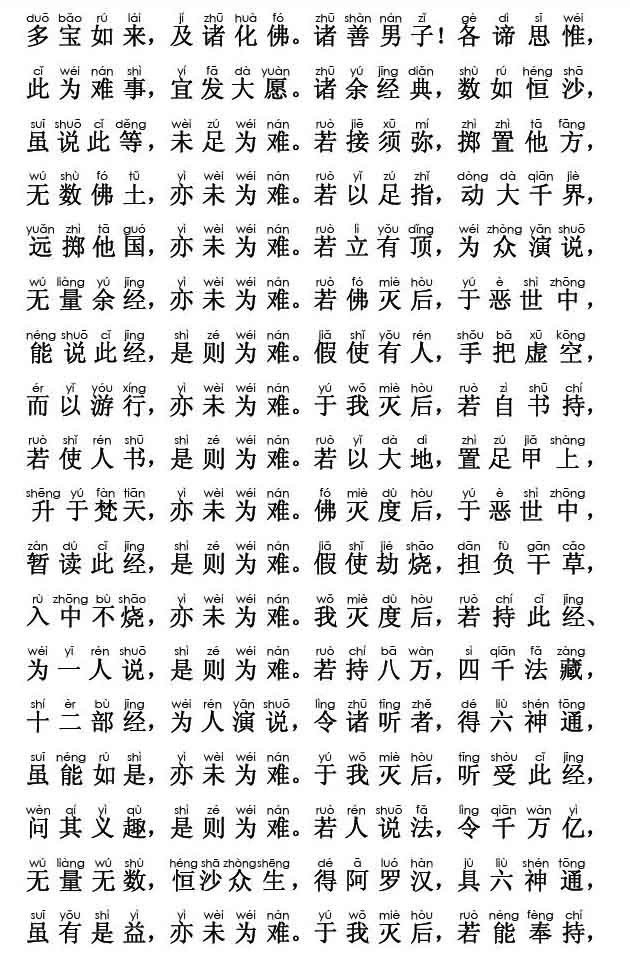 duō bǎo rú lái jí zhū huà fó zhū shàn nán zǐ gè dì sī wéi
多宝如来，及诸化佛。诸善男子！各谛思惟，
cǐ wéi nán shì yí fā dà yuàn zhū yú jīng diǎn shù rú héng shā
此为难事，宜发大愿。诸余经典，数如恒沙，
suī shuō cǐ děng wèi zú wéi nán ruò jiē xū mí zhì zhì tā fāng
虽说此等，未足为难。若接须弥，掷置他方，
wú shù fó tǔ yì wèi wéi nán ruò yǐ zú zhǐ dòng dà qiān jiè
无数佛土，亦未为难。若以足指，动大千界，
yuǎn zhì tā guó yì wèi wéi nán ruò lì yǒu dǐng wéi zhòng yǎn shuō
远掷他国，亦未为难。若立有顶，为众演说，
wú liàng yú jīng yì wèi wéi nán ruò fó miè hòu yú è shì zhōng
无量余经，亦未为难。若佛灭后，于恶世中，
néng shuō cǐ jīng shì zé wéi nán jiǎ shǐ yǒu rén shǒu bǎ xū kōng
能说此经，是则为难。假使有人，手把虚空，
ér yǐ yóu xíng yì wèi wéi nán yú wǒ miè hòu ruò zì shū chí
而以游行，亦未为难。于我灭后，若自书持，
ruò shǐ rén shū shì zé wéi nán ruò yǐ dà dì zhì zú jiǎ shàng
若使人书，是则为难。若以大地，置足甲上，
shēng yú fàn tiān yì wèi wéi nán fó miè dù hòu yú è shì zhōng
升于梵天，亦未为难。佛灭度后，于恶世中，
zàn dú cǐ jīng shì zé wéi nán jiǎ shǐ jié shāo dān fù gān cǎo
暂读此经，是则为难。假使劫烧，担负干草，
rù zhōng bù shāo yì wèi wéi nán wǒ miè dù hòu ruò chí cǐ jīng
入中不烧，亦未为难。我灭度后，若持此经、
wéi yī rén shuō shì zé wéi nán ruò chí bā wàn sì qiān fǎ zàng
为一人说，是则为难。若持八万，四千法藏，
shí èr bù jīng wéi rén yǎn shuō lìng zhū tīng zhě dé liù shén tōng
十二部经，为人演说，令诸听者，得六神通，
suī néng rú shì yì wèi wéi nán yú wǒ miè hòu tīng shòu cǐ jīng
虽能如是，亦未为难。于我灭后，听受此经，
wèn qí yì qù shì zé wéi nán ruò rén shuō fǎ lìng qiān wàn yì
问其义趣，是则为难。若人说法，令千万亿，
wú liàng wú shù héng shā zhòng shēng dé ā luó hàn jù liù shén tōng
无量无数，恒沙众生，得阿罗汉，具六神通，
suī yǒu shì yì yì wèi wéi nán yú wǒ miè hòu ruò néng fèng chí
虽有是益，亦未为难。于我灭后，若能奉持，